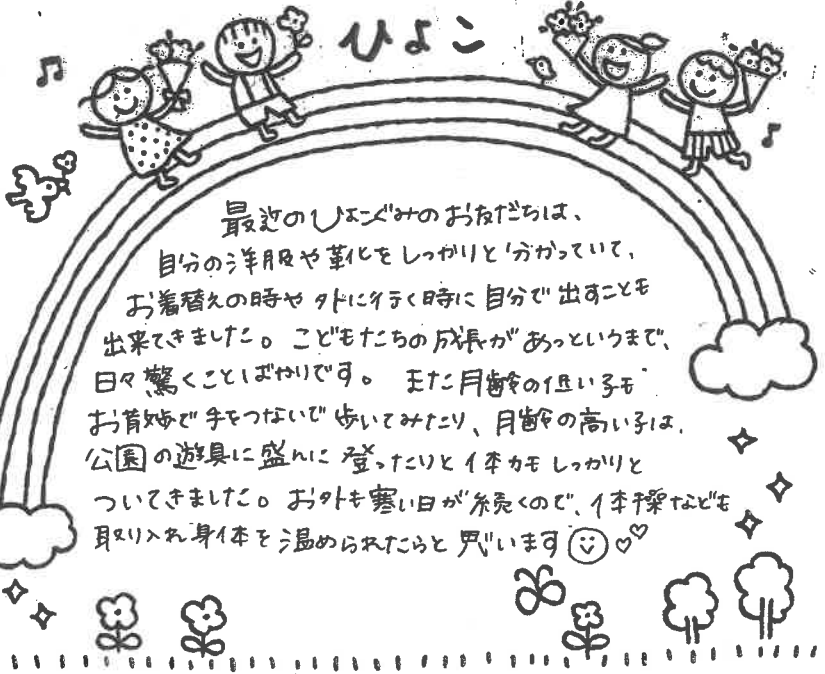 ひよこ
最近のひよこぐみのお友だちは、
自分の洋服や靴をしっかりと分かっていて、
お着替えの時や外に行く時に自分で出すことも
出来てきました。こどもたちの成長があっというまで、
日々驚くことばかりです。また月齢の低い子も
お散歩で手をつないで歩いてみたり、月齢の高い子は、
公園の遊具に盛んに登ったりと体力もしっかりと
ついてきました。お外も寒い日が続くので、体操なども
取り入れ身体を温められたらと思います